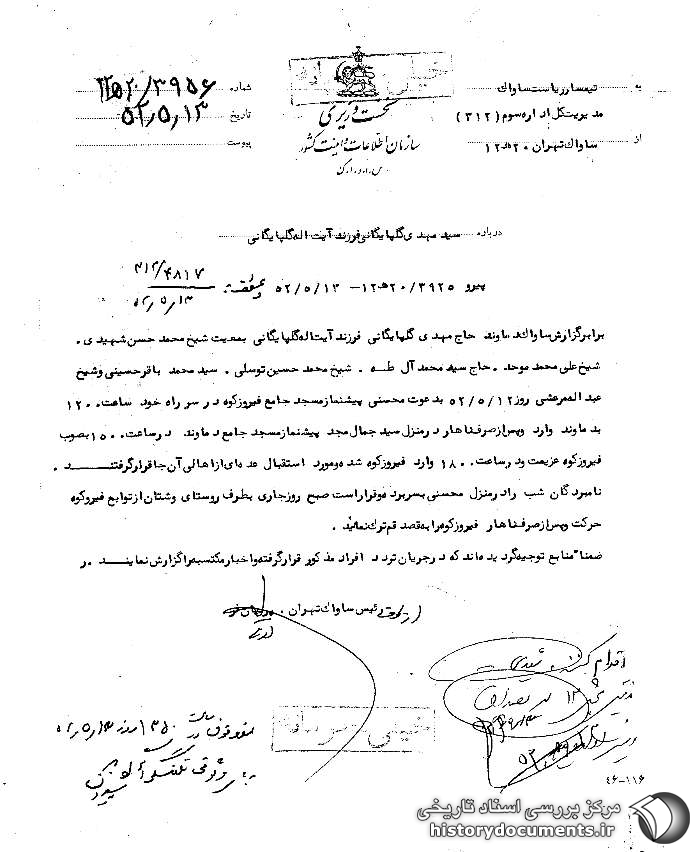 خیلی محرمانه
به تیمسار ریاست ساواک
مدیریت کل اداره سوم (۳۱۲)
از ساواک تهران ۲۰ هـ ۱۲
نخست وزیری
سازمان اطلاعات و امنیت کشور
س.ا.و.ا.ک
شماره ۳۹۵۶/۲۰ هـ ۱۲
تاریخ ۵۲/۵/۱۳
پیوست
درباره سید مهدی گلپایگانی فرزند آیت اله گلپایگانی
پیرو ۳۹۲۵/۲۰ هـ ۱۲ - ۵۲/۵/۱۳
۳۱۲/۴۸۱۷
۵۲/۵/۱۳
برابر گزارش ساواک دماوند حاج مهدی گلپایگانی فرزند آیت اله گلپایگانی بمعیت شیخ محمد حسن شهیدی.
شیخ علی محمد موحد. حاج سید محمد آل طه. شیخ محمد حسین توسلی. سید محمد باقر حسینی و شیخ
عبدالله مرعشی روز ۵۲/۵/۱۲ بدعوت محسنی پیشنماز مسجد جامع فیروزکوه در سر راه خود ساعت ۱۲۰۰
بدماوند وارد و پس از صرف ناهار در منزل سید جمال مجد پیشنماز مسجد جامع دماوند در ساعت ۱۵۰۰ بصوب
فیروزکوه عزیمت و در ساعت ۱۸۰۰ وارد فیروزکوه شده و مورد استقبال عده ای از اهالی آن جا قرار گرفتند.
نامبردگان شب را در منزل محسنی بسر برده و قرار است صبح روز جاری بطرف روستای وشتان از توابع فیروزکوه
حرکت و پس از صرف ناهار فیروزکوه را به قصد قم ترک نمایند.
ضمنا" منابع توجیه گردیده اند که در جریان تردد افراد مذکور قرار گرفته و اخبار مکتسبه را گزارش نمایند. ر
رئیس ساواک تهران.
اقدام کننده
خیلی محرمانه
۴۶-۱۱۶
مرکز بررسی اسناد تاریخی
historydocuments.ir